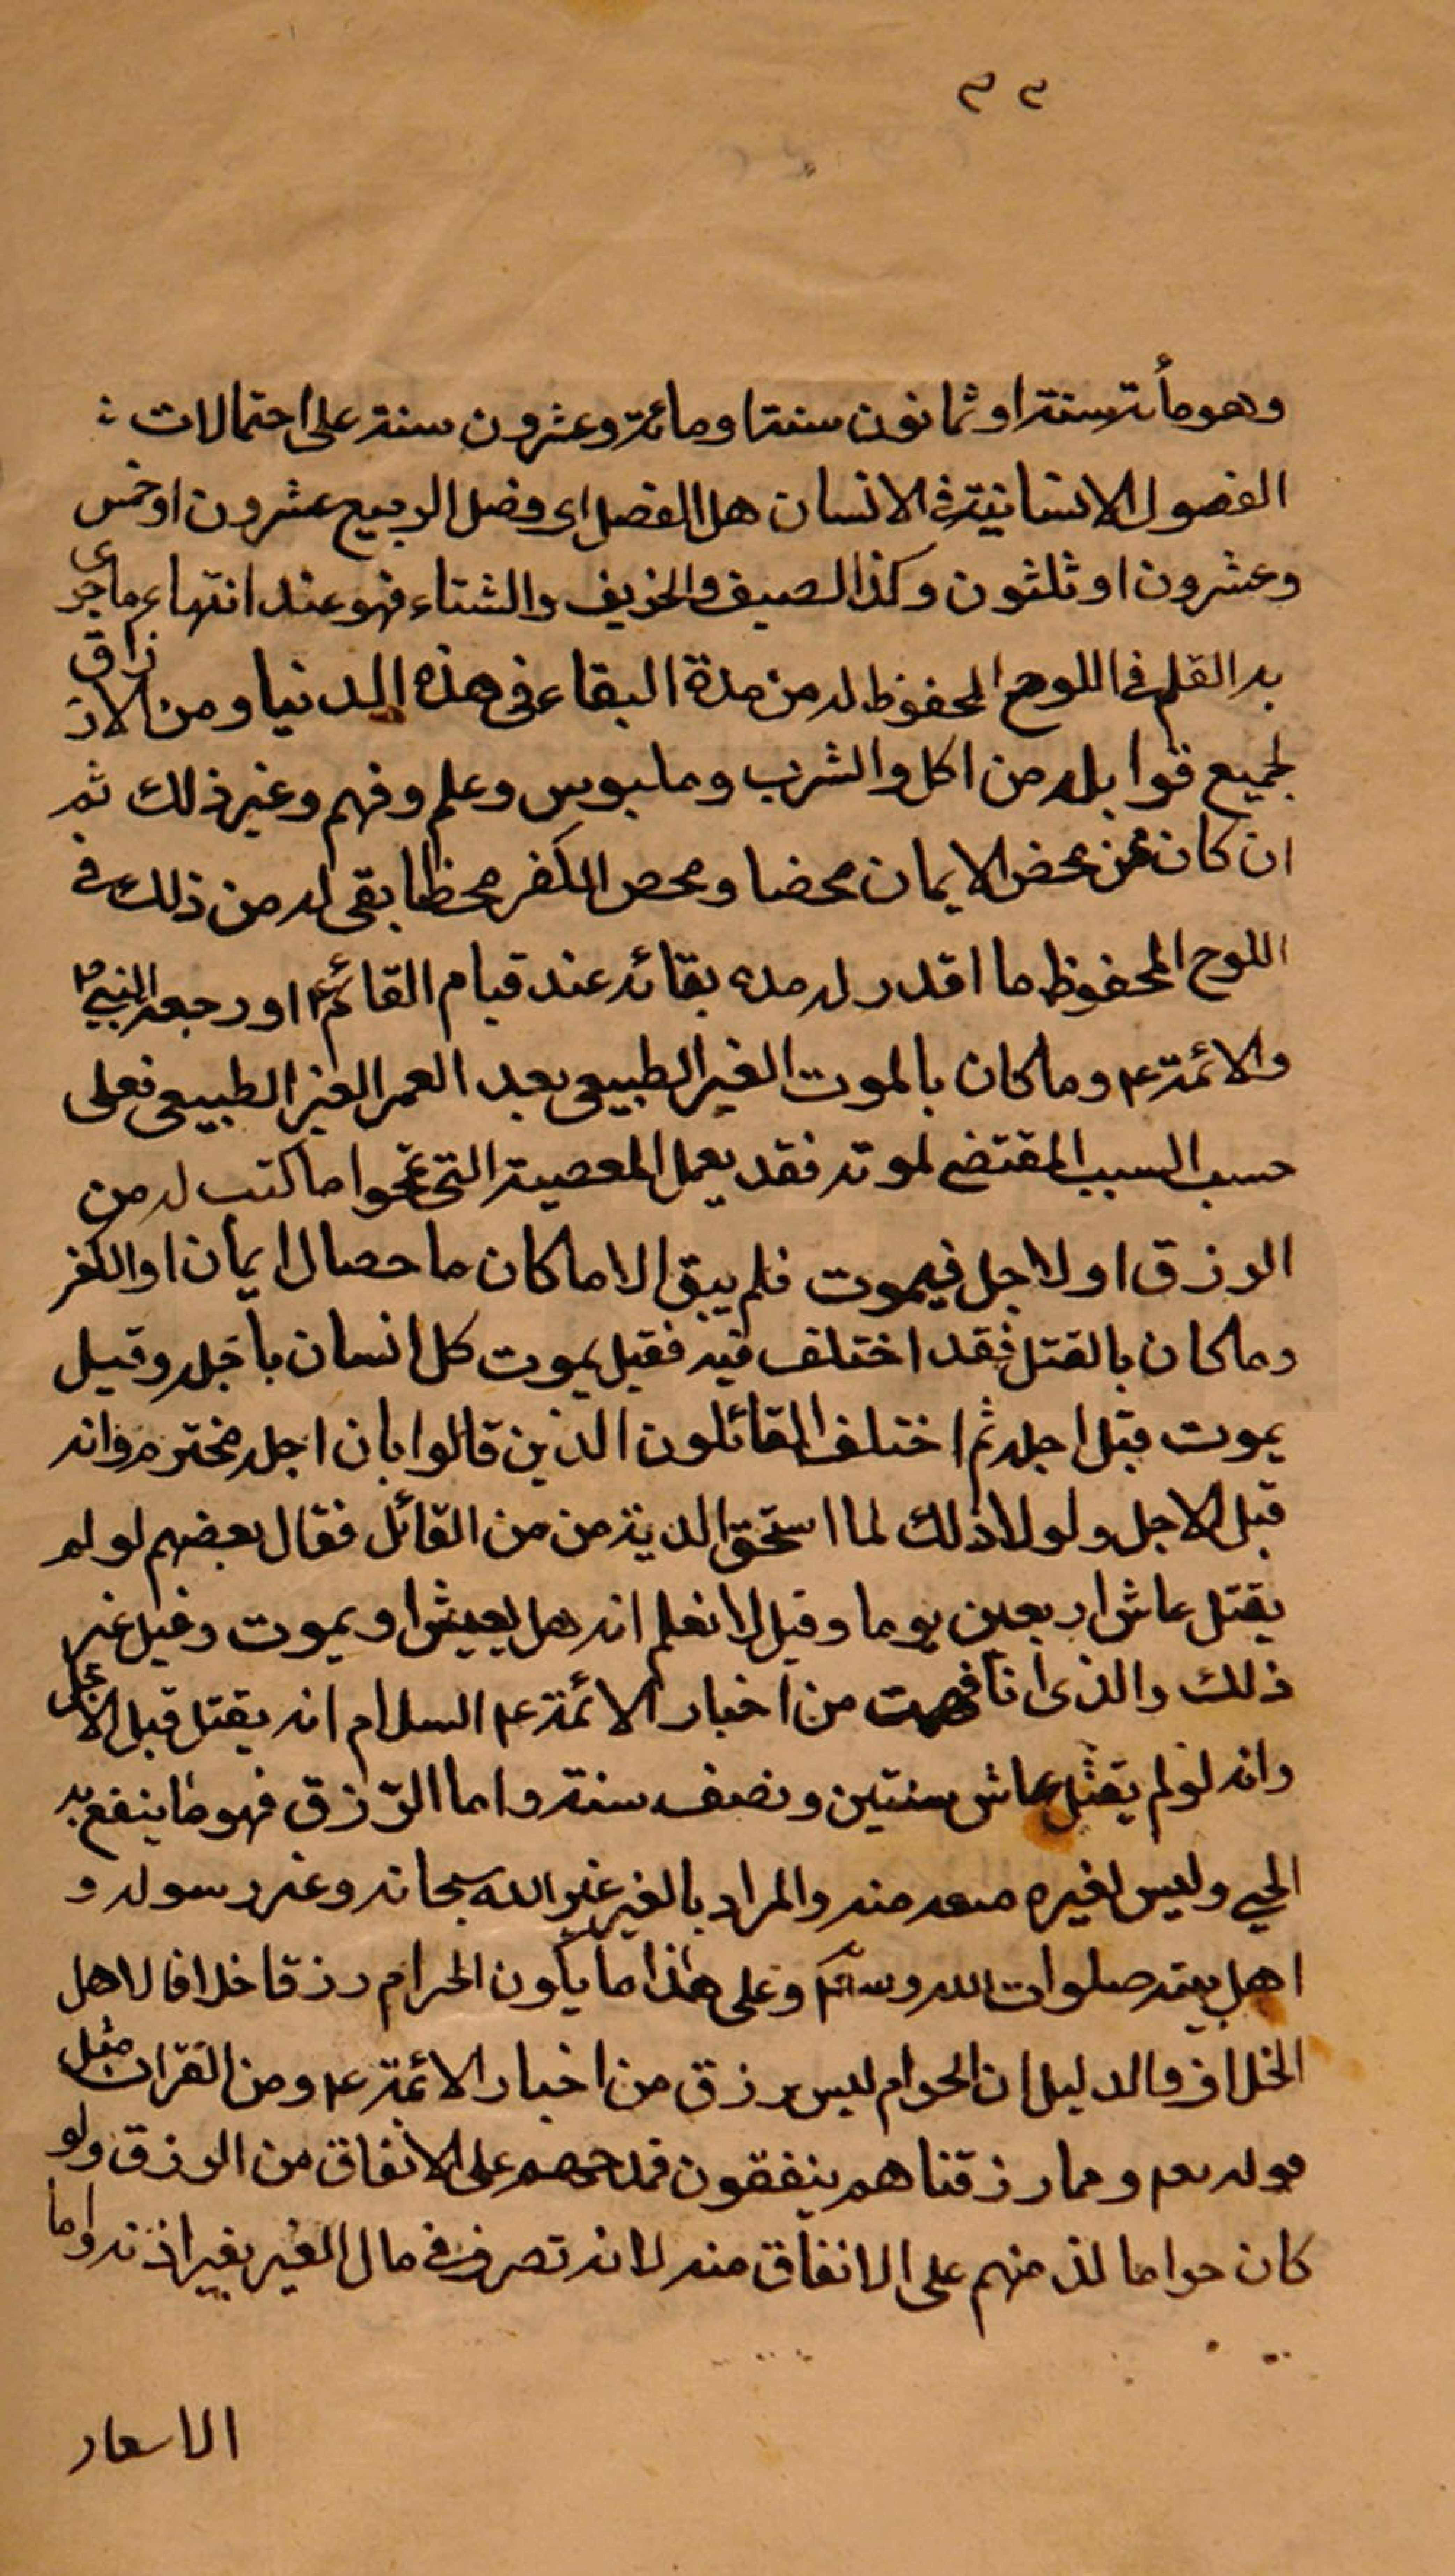 ٣٢
وهو مأة سنة او ثمانون سنة او مائة وعشرون سنة على احتمالات
الفصول الانسانية في الانسان هل الفصل اى فصل الربيع عشرون او خمس
وعشرون او ثلثون وكذا الصيف والخريف والشتاء فهو عند انتهاء ماجرى
به القلم في اللوح المحفوظ له من مدة البقاء في هذه الدنيا ومن الارزاق
لجميع قوابله من اكل والشرب وملبوس وعلم وفهم وغير ذلك ثم
ان كان ممن محض الايمان محضا ومحص الكفر محظا بقى له من ذلك في
اللوح المحفوظ ما اقدر له مده بقائه عند قيام القائم ع او رجعة النبي ص
والائمة ع وما كان بالموت الغير الطبيعى بعد العمر الغير الطبيعى فعلى
حسب السبب المقتضى لموته فقد يعمل المعصية التى تمحوا ما كتب له من
الرزق او لاجل فيموت فلم يبق الا ما كان ما حصا الايمان او الكفر
وما كان بالقتل فقد اختلف فيه فقيل يموت كل انسان باجله وقيل
يموت قبل اجله ثم اختلف القائلون الذين قالوا بان اجله مخترم وانه
قبل الاجل ولولا ذلك لما استحق الدية من من القائل فقال بعضهم لو لم
يقتل عاش اربعين يوما وقيل لا نعلم انه هل يعيش او يموت وقيل غير
ذلك والذى انا فهمت من اخبار الائمة ع السلام انه يقتل قبل الاجل
وانه لو لم يقتل عاش سنتين ونصف سنة واما الرّزق فهو ما ينفع به
الحي وليس لغيره منعه منه والمراد بالغير غير الله سبحانه وغير رسوله و
اهل بيته صلوات الله وسلم وعلى هذا ما يكون الحرام رزقا خلافا لاهل
الخلاف والدليل ان الحرام ليس برزق من اخبار الائمة ع ومن القران مثل
قوله تعم ومما رزقناهم ينفقون فمدحهم على الانفاق من الرزق ولو
كان حراما لذمهم على الانفاق منه لانه تصرف في مال الغير بغير اذنه واما
الاسعار